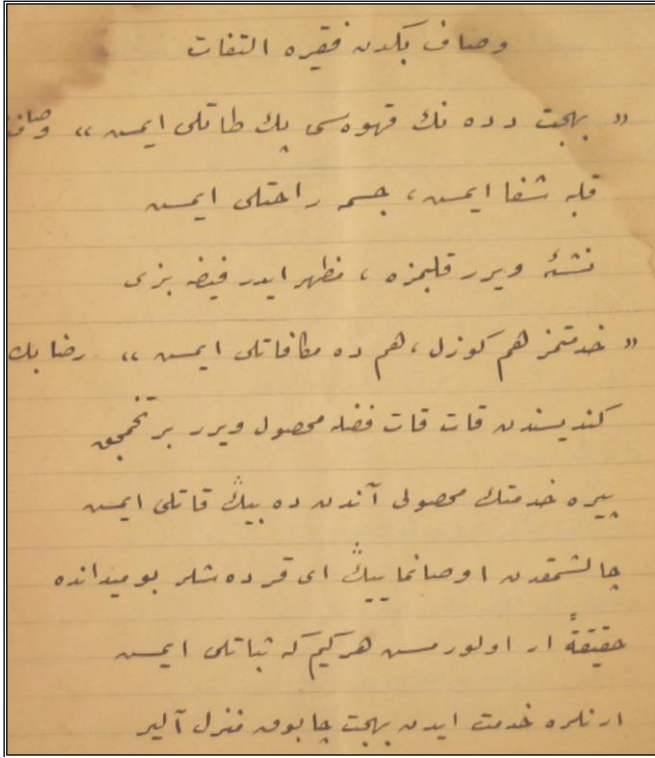 وصاف بكدن فقيره التفات
« بهجت دده نك قهوه سى پك طاتلى ايمس » وصاف
قلبه شفا ايمس ، جسمه راحتلى ايمس
نشئه ويرر قلبمزه ، مظهر ايدر فيضه بزى
« خدمتمز هم كوزل ، هم ده مكافاتلى ايمس » رضا بك
كنديسندن قات قات فضله محصول ويرر بر تخمجق
پيره خدمتك محصولى آندن ده بيڭ قاتلى ايمس
چالشمقدن اوصانماييڭ اى قرده شلر بو ميدانده
حقيقةً ار اولورمس هركيم كه ثباتلى ايمس
ارنلره خدمت ايدن بهجت چابوق منزل آلير